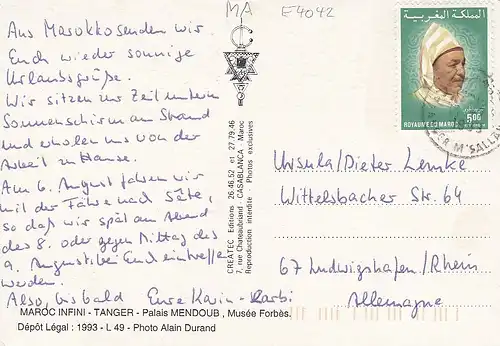 MA
E4042
Aus Marokko senden wir
Euch wieder sonnige
Urlaubsgrüße.
Wir sitzen zur Zeit unterm
Sonnenschirm am Strand
und erholen uns von der
Arbeit zu Hause.
Am 6. August fahren wir
mit der Fähre nach Sète,
so daß wir spät am Abend
des 8. oder gegen Mittag des
9. August bei Euch eintreffen
werden.
Also, bis bald Eure Karin
CREATEC Editions 26.46.52 et 27.79.46
7, rue Chateaubriand - CASABLANCA - Maroc
Reproduction interdite Photos exclusives
المملكة المغربية
ROYAUME DU MAROC 5,00
M'SALLA
Ursula/Dieter Lemke
Wittelsbacher Str. 64
67 Ludwigshafen/Rhein
Allemagne
MAROC INFINI - TANGER - Palais MENDOUB, Musée Forbès.
Dépôt Légal : 1993 - L 49 - Photo Alain Durand